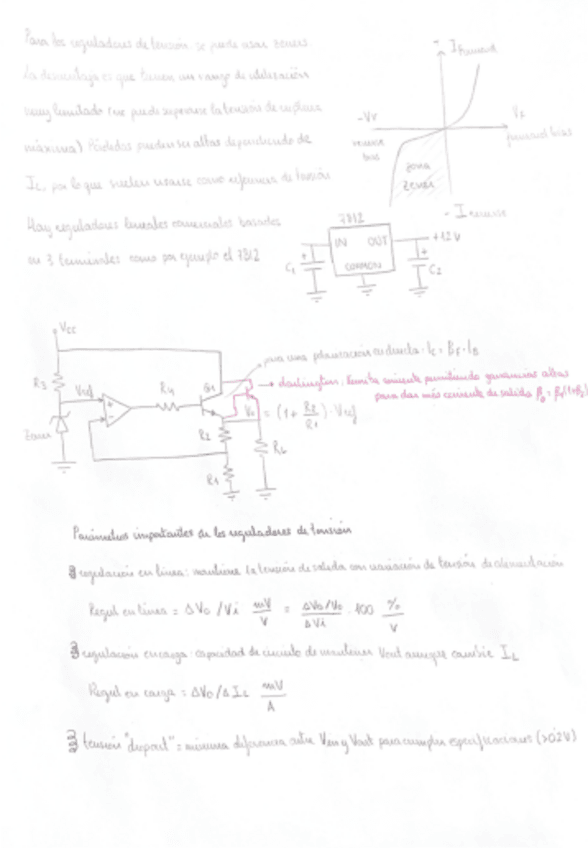 Para los reguladores de tensión se puede usar zeners
La desventaja es que tienen un rango de utilización
muy limitado (no puede superarse la tensión de
máxima) Pérdidas pueden ser altas dependiendo de
IL por lo que suelen usarse como referencia de tensión
Hay reguladores lineales comerciales basados
en 3 terminales como por ejemplo el 7812
I forward
-Vr
Vf
reverse bias
forward bias
zona
zener
- I reverse
7812
IN OUT
COMMON
+12V
C1
C2
Vcc
R3
Vref
R4
Q1
Zener
R2
R1
RL
para una polarización en directa: Ic = BF · IB
→ darlington: limita corriente permitiendo ganancias altas
para dar más corriente de salida
Vo = (1 + R2/R1) · Vref
Parámetros importantes de los reguladores de tensión
regulación en línea: mantiene la tensión de salida con variación de tensión de alimentación
Regul en línea = ΔVo / Vi mV/V = ΔVo/Vo / ΔVi · 100 %/V
regulación en carga: capacidad de circuito de mantener Vout aunque cambie IL
Regul en carga = ΔVo/ΔIL mV/A
tensión "dropout" = mínima diferencia entre Vin y Vout para cumplir especificaciones (>0.2V)